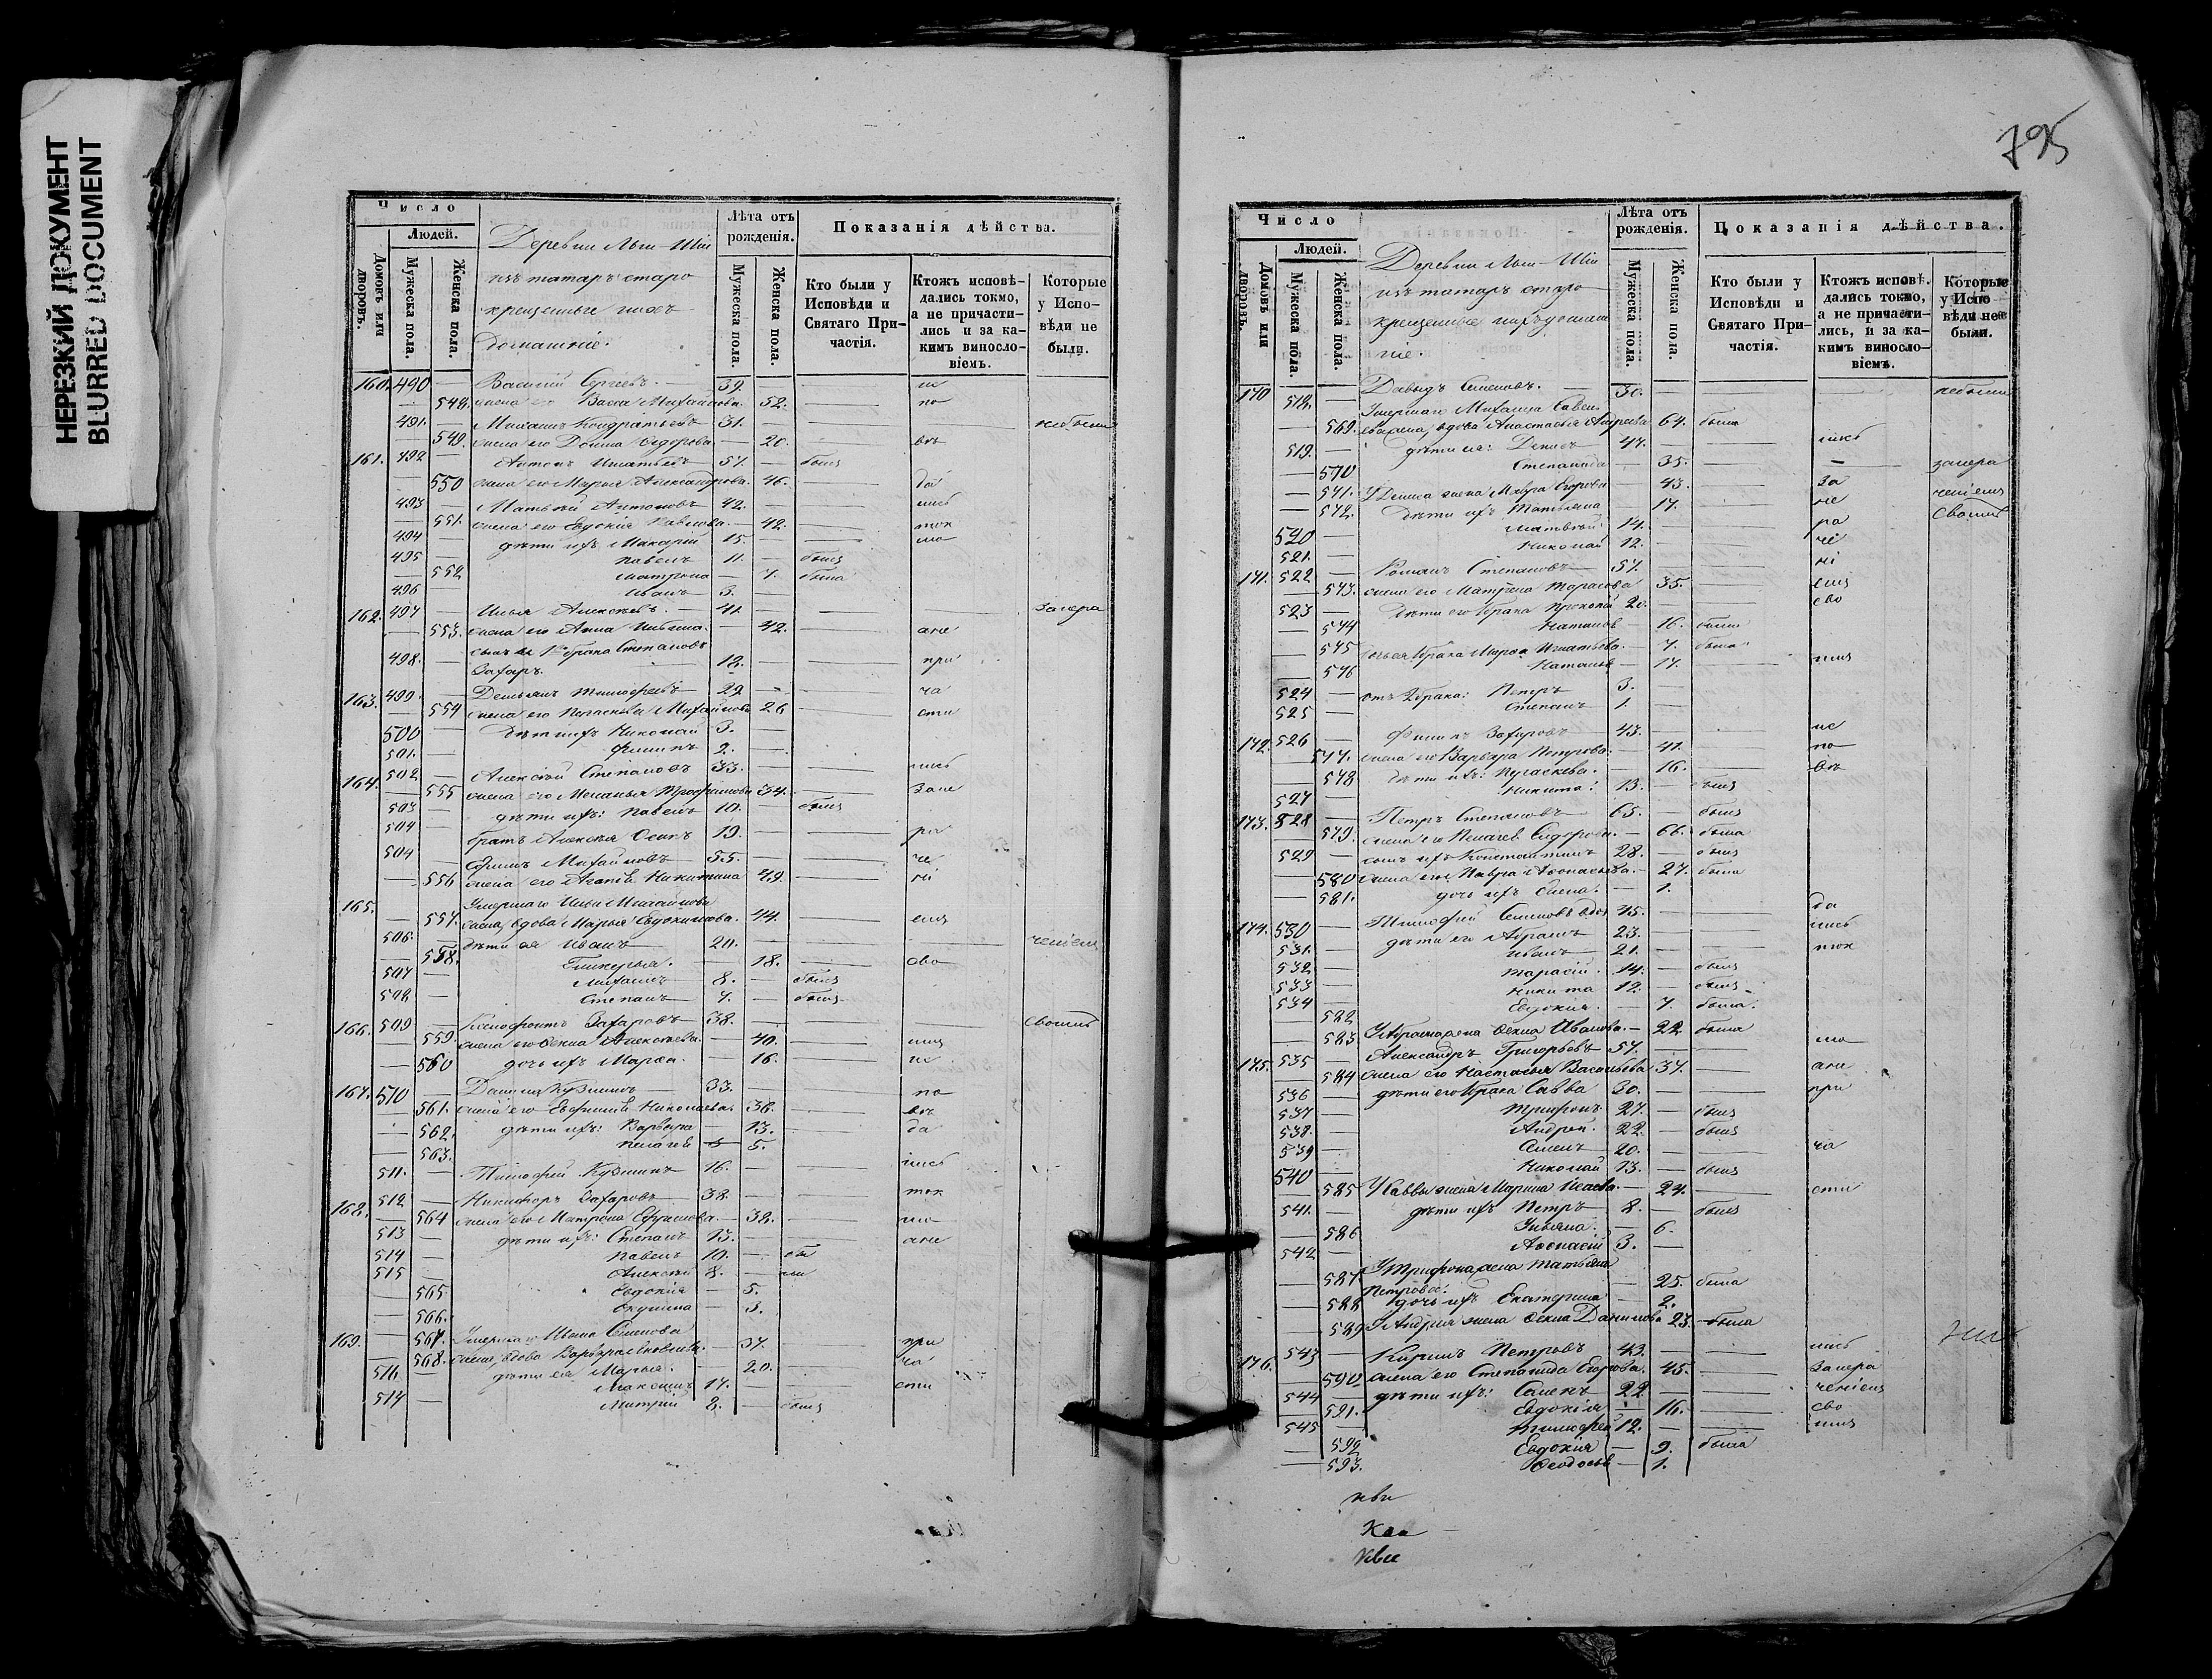 НЕРЕЗКИЙ ДОКУМЕНТ
BLURRED DOCUMENT
Число
Людей.
Домовъ или дворовъ.
Мужеска пола.
Женска пола.
Деревни
изъ татаръ старо
крещеныхъ
домашніе:
Лѣта отъ рожденія.
Мужеска пола.
Женска пола.
Показанія дѣйства.
Кто были у Исповѣди и Святаго Причастія.
Ктожъ исповѣдались токмо, а не причастились и за какимъ винословіемъ.
Которые у Исповѣди не были.
160. 490 — Василій Сергѣевъ. — 39.
— 548. жена его Васса Михайлова. 52. по
491. Михаилъ Кондратьевъ 31. небыли
— 549. жена его Домна Сидорова — 20. вѣ
161. 492 — Антонъ Игнатьевъ 57. — былъ
— 550 жена его Марья Александрова. 46. да
493 — Матвѣй Антоновъ 42. — лись
— 551. жена его Евдокія Павлова. — 42. ток
494 — дѣти ихъ Макарій 15. мо
495 — Павелъ 11. — былъ
— 552 Матрона — 7. была
496 — Иванъ 3. —
162. 497 — Илья Алексѣевъ. — 41. — занера
— 553. жена его Анна Ильина. — 42. ане
498. — сынъ ея 1го брака Степановъ
Захаръ. 18. — при
163. 499. — Демьянъ Тимофеевъ 29 — ча
— 554 жена его Параскева Михайлова 26 сти
500 — дѣти ихъ Николай 3. —
501. — Филипъ 2. —
164. 502 — Алексѣй Степановъ 33. лись
— 555 жена его Меланья Трофимова 34. зане
503 — дѣти ихъ: Павелъ 10. — былъ
504 — братъ Алексѣя Осипъ 19. — ра
504 — Михайловъ 55. — че
— 556 жена его Агапія Никитина 49. ні
165. Умершаго Ильи Михайлова
— 557. жена, вдова Марья Евдокимова. 44. емъ
506. — дѣти ея Иванъ 20. — ченіемъ
— 558. Гликерья. — 18. сво
507 — Михаилъ 8. — былъ
508 — Степанъ 7. — былъ
166. 509 — Ксенофонтъ Захаровъ 38. своимъ
— 559. жена его Фекла Алексѣева. — 40. имъ
— 560 дочь ихъ Марѳа. — 16. ис
167. 510 — Данила Кузминъ 33. — по
— 561. жена его Ефимія Николаева. 38. вѣ
— 562. дѣти ихъ: Варвара — 13. да
— 563. Пелагея 5.
511. — Тимофей Кузминъ 16. — лись
168. 512 — Никифоръ Захаровъ 38. — ток
— 564 жена его Матрена Ефимова. — 38. мо
513 — дѣти ихъ: Степанъ 13. — ане
514 — Павелъ 10. — бы
515 — Алексѣй 8. — ли
— 565 Евдокія — 5.
— 566. Акулина — 3.
169. — 567. Умершаго Ивана Семенова
— 568. жена, вдова Варвара Яковлева. — 37. при
дѣти ея Марья. — 20. ча
516 — Максимъ 17. — сти
517 — Митрій 8. — былъ
795
Число
Людей.
Домовъ или дворовъ.
Мужеска пола.
Женска пола.
Деревни
изъ татаръ старо
крещеные
ніе.
Лѣта отъ рожденія.
Мужеска пола.
Женска пола.
Показанія дѣйства.
Кто были у Исповѣди и Святаго Причастія.
Ктожъ исповѣдались токмо, а не причастились, и за какимъ винословіемъ.
Которые у Исповѣди не были.
170 518. — Давыдъ Семеновъ. — 30. — небыли
Умершаго Михаила
— 569. жена, вдова Анастасья Андреева 64. была
519. — дѣти ея: Денисъ 44. лись
— 570 Степанида — 35. занера
— 571. У Дениса жена Мавра Егорова 43. за ченіемъ
— 572. дѣти ихъ Татьяна 17. не своимъ
520 — Матвѣй 14. ра
521. — Николай 12. че
171. 522 — Романъ Степановъ 57. ні
— 573. жена его Матрена Тарасова 35. емъ
523 — дѣти его 1брака Прокопій 20. сво
— 574 Наталья — 16. была
— 575 Марѳа Игнатьева. — 7. была
— 576 Наталья — 17. имъ
524 — отъ 2брака: Петръ 3. —
525 — Степанъ 1. —
172. 526 — Филипъ Захаровъ 43. ис
— 577. жена его Варвара Петрова. — 41. по
— 578 дѣти ихъ: Параскева. — 16. вѣ
527 — Никита. 13. — былъ
173. 528 — Петръ Степановъ 65. — былъ
— 579. жена его Пелагея Сидорова. — 66. была
529 — сынъ ихъ Константинъ 28. — былъ
— 580 жена его Мавра Аѳонасьева. — 27. была
— 581. дочь ихъ Анна. — 1.
174. 530 — Тимофей Семеновъ вдов 45. да
531. — дѣти его Абрамъ 23. лись
532 — Иванъ 21. ток
533 — Тарасій. 14. — былъ
534 — Никита 12. — былъ
— 582 Евдокія. — 7 была.
— 583 У Абрама жена Фекла Иванова. — 22 была
175. 535 — Александръ Григорьевъ 57. мо
— 584 жена его Настасья Васильева 37. ане
536 — дѣти его 1брака Савва 30. при
537 — Трифонъ 27. — былъ
538. — Андрей. 22. — былъ
539 — Семенъ 20. ча
540 — Николай 13. — былъ
— 585 У Саввы жена Марина Исаева. — 24. сти
541. — дѣти ихъ Петръ 8. — былъ
— 586 Ульяна. — 6.
542 — Аѳонасій 3. —
— 587. У Трифона жена Татьяна
Петрова. — 25. была
— 588 дочь ихъ Екатерина — 2.
— 589 У Андрея жена Фекла Данилова 23. была
176. 543 — Кирилъ Петровъ 43. лись
— 590 жена его Степанида Егорова. 45. занера
544 — дѣти ихъ: Семенъ 22 ченіемъ
— 591. Евдокія — 16. сво
545 — Тимофей 12. — имъ
— 592 Евдокія — 9. была
— 593. Ѳеодосья — 1.